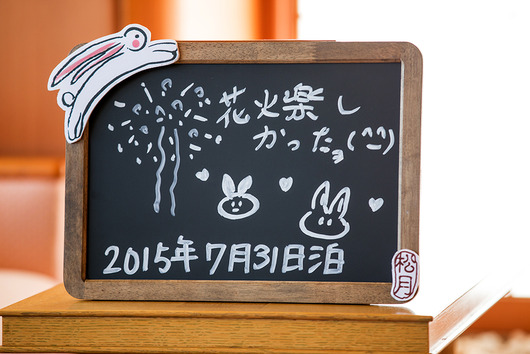 花火楽し
かったっ(^^)
2015年7月31日泊
松月